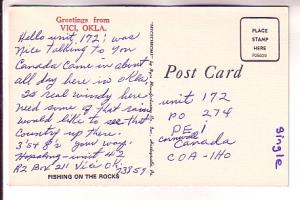 Greetings from
VICI, OKLA.
Hello unit 172; was
Nice Talking To You
Canada Came in about
all day here in Okla
Is real windy here
need some of that rain
would like to see that
Country up there.
3's + 8's your way.
unit 42
R2 Box 211 Vici Ok.
73859
FISHING ON THE ROCKS
Post Card
PLACE
STAMP
HERE
unit 172
PO 274
PEI
Cornwall
Canada
COA-1HO
Single